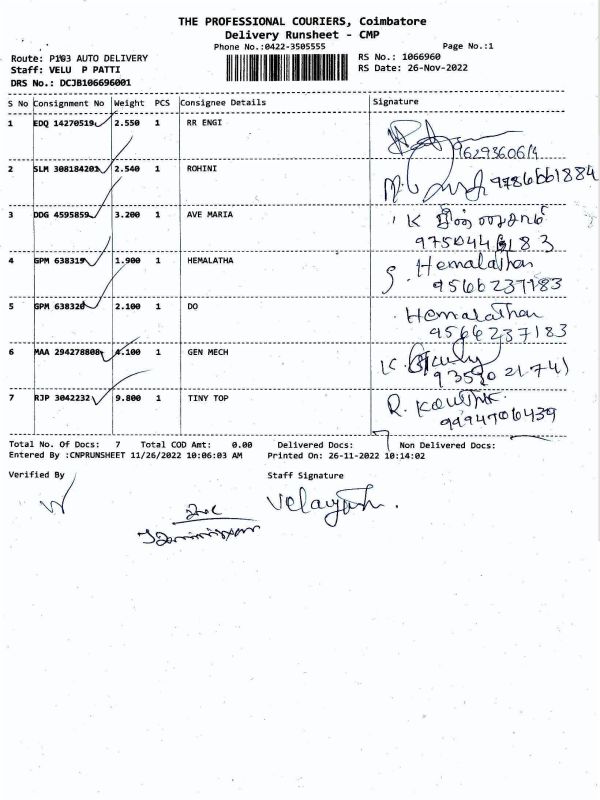 THE PROFESSIONAL COURIERS, Coimbatore
Delivery Runsheet - CMP
Phone No.:0422-3505555
Page No.:1
Route: P103 AUTO DELIVERY
RS No.: 1066960
Staff: VELU P PATTI
RS Date: 26-Nov-2022
DRS No.: DCJB106696001
S No Consignment No Weight PCS Consignee Details Signature
1 EDQ 14270519 2.550 1 RR ENGI
9629360614
2 SLM 308184203 2.540 1 ROHINI
9786661884
3 DDG 4595859 3.200 1 AVE MARIA
K
9750446183
4 GPM 638319 1.900 1 HEMALATHA Hemalatha
9566237183
5 GPM 638320 2.100 1 DO Hemalatha
9566237183
6 MAA 294278808 4.100 1 GEN MECH K.
7 RJP 3042232 9.800 1 TINY TOP R.
Total No. Of Docs: 7 Total COD Amt: 0.00 Delivered Docs: 7 Non Delivered Docs:
Entered By :CNPRUNSHEET 11/26/2022 10:06:03 AM Printed On: 26-11-2022 10:14:02
Verified By Staff Signature